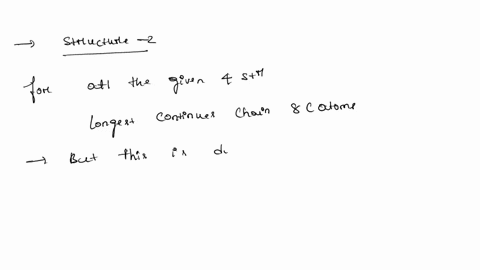 → Structure -2
for all the given 4 str
Longest continues chain 8 C atoms
→ But this is d